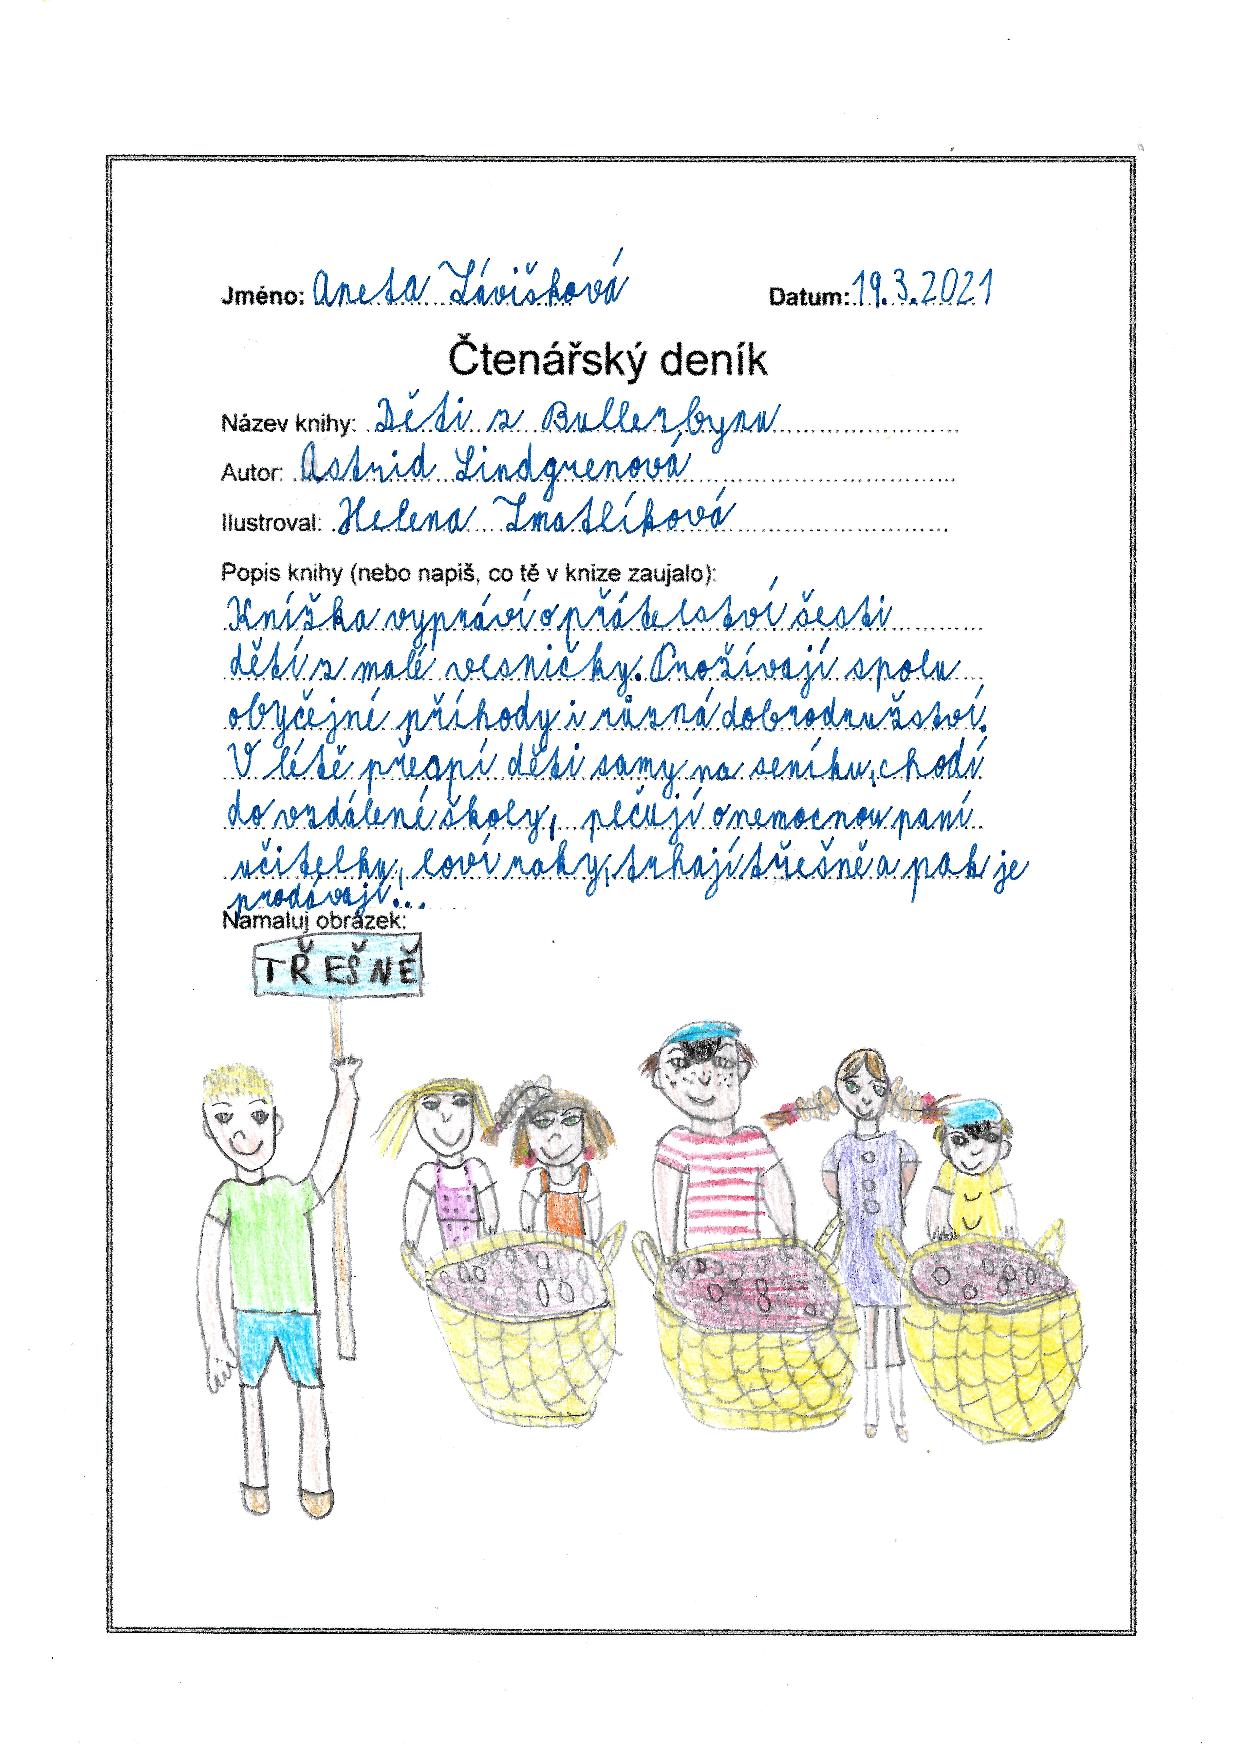 Jméno: Aneta Závišková Datum: 19.3.2021
Čtenářský deník
Název knihy: Děti z Bullerbynu
Autor: Astrid Lindgrenová
Ilustroval: Helena Zmatlíková
Popis knihy (nebo napiš, co tě v knize zaujalo):
Knížka vypráví o přátelství šesti
dětí z malé vesničky. Prožívají spolu
obyčejné příhody i různá dobrodružství.
V létě přespí děti samy na seníku, chodí
do vzdálené školy, pečují o nemocnou paní
učitelku, loví raky, trhají třešně a pak je
prodávají...
Namaluj obrázek:
TŘEŠNĚ